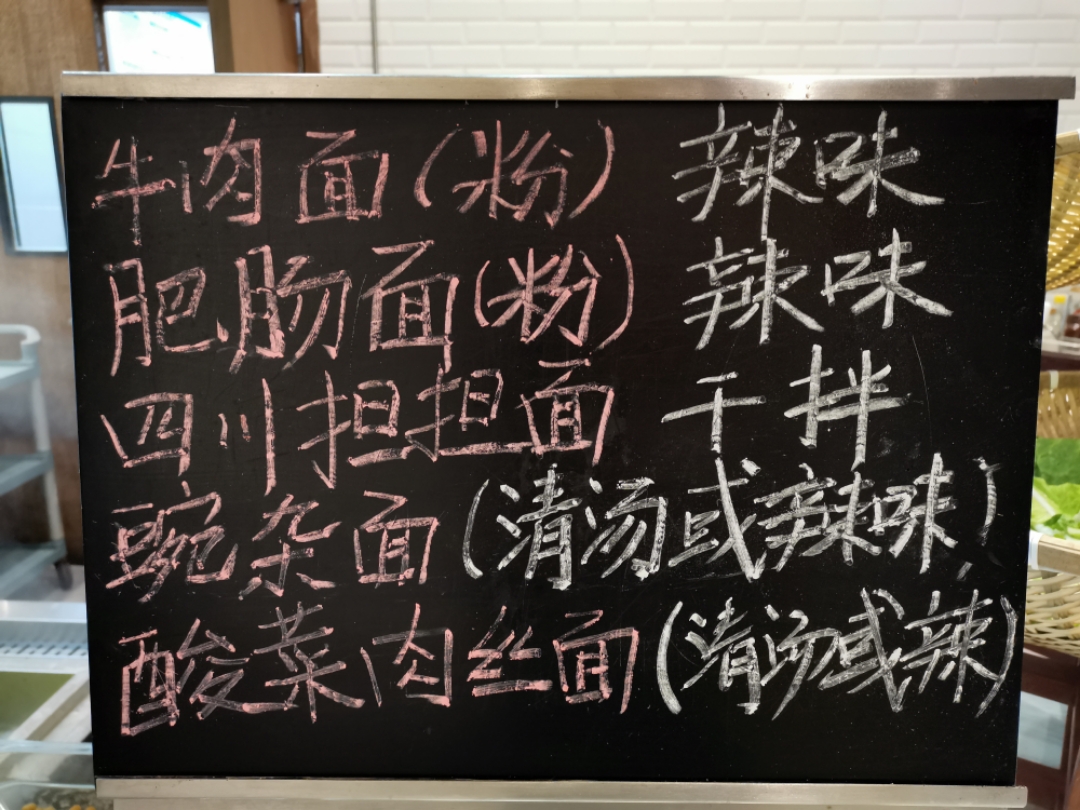 牛肉面（粉） 辣味
肥肠面（粉） 辣味
四川担担面 干拌
豌杂面（清汤或辣味）
酸菜肉丝面（清汤或辣）